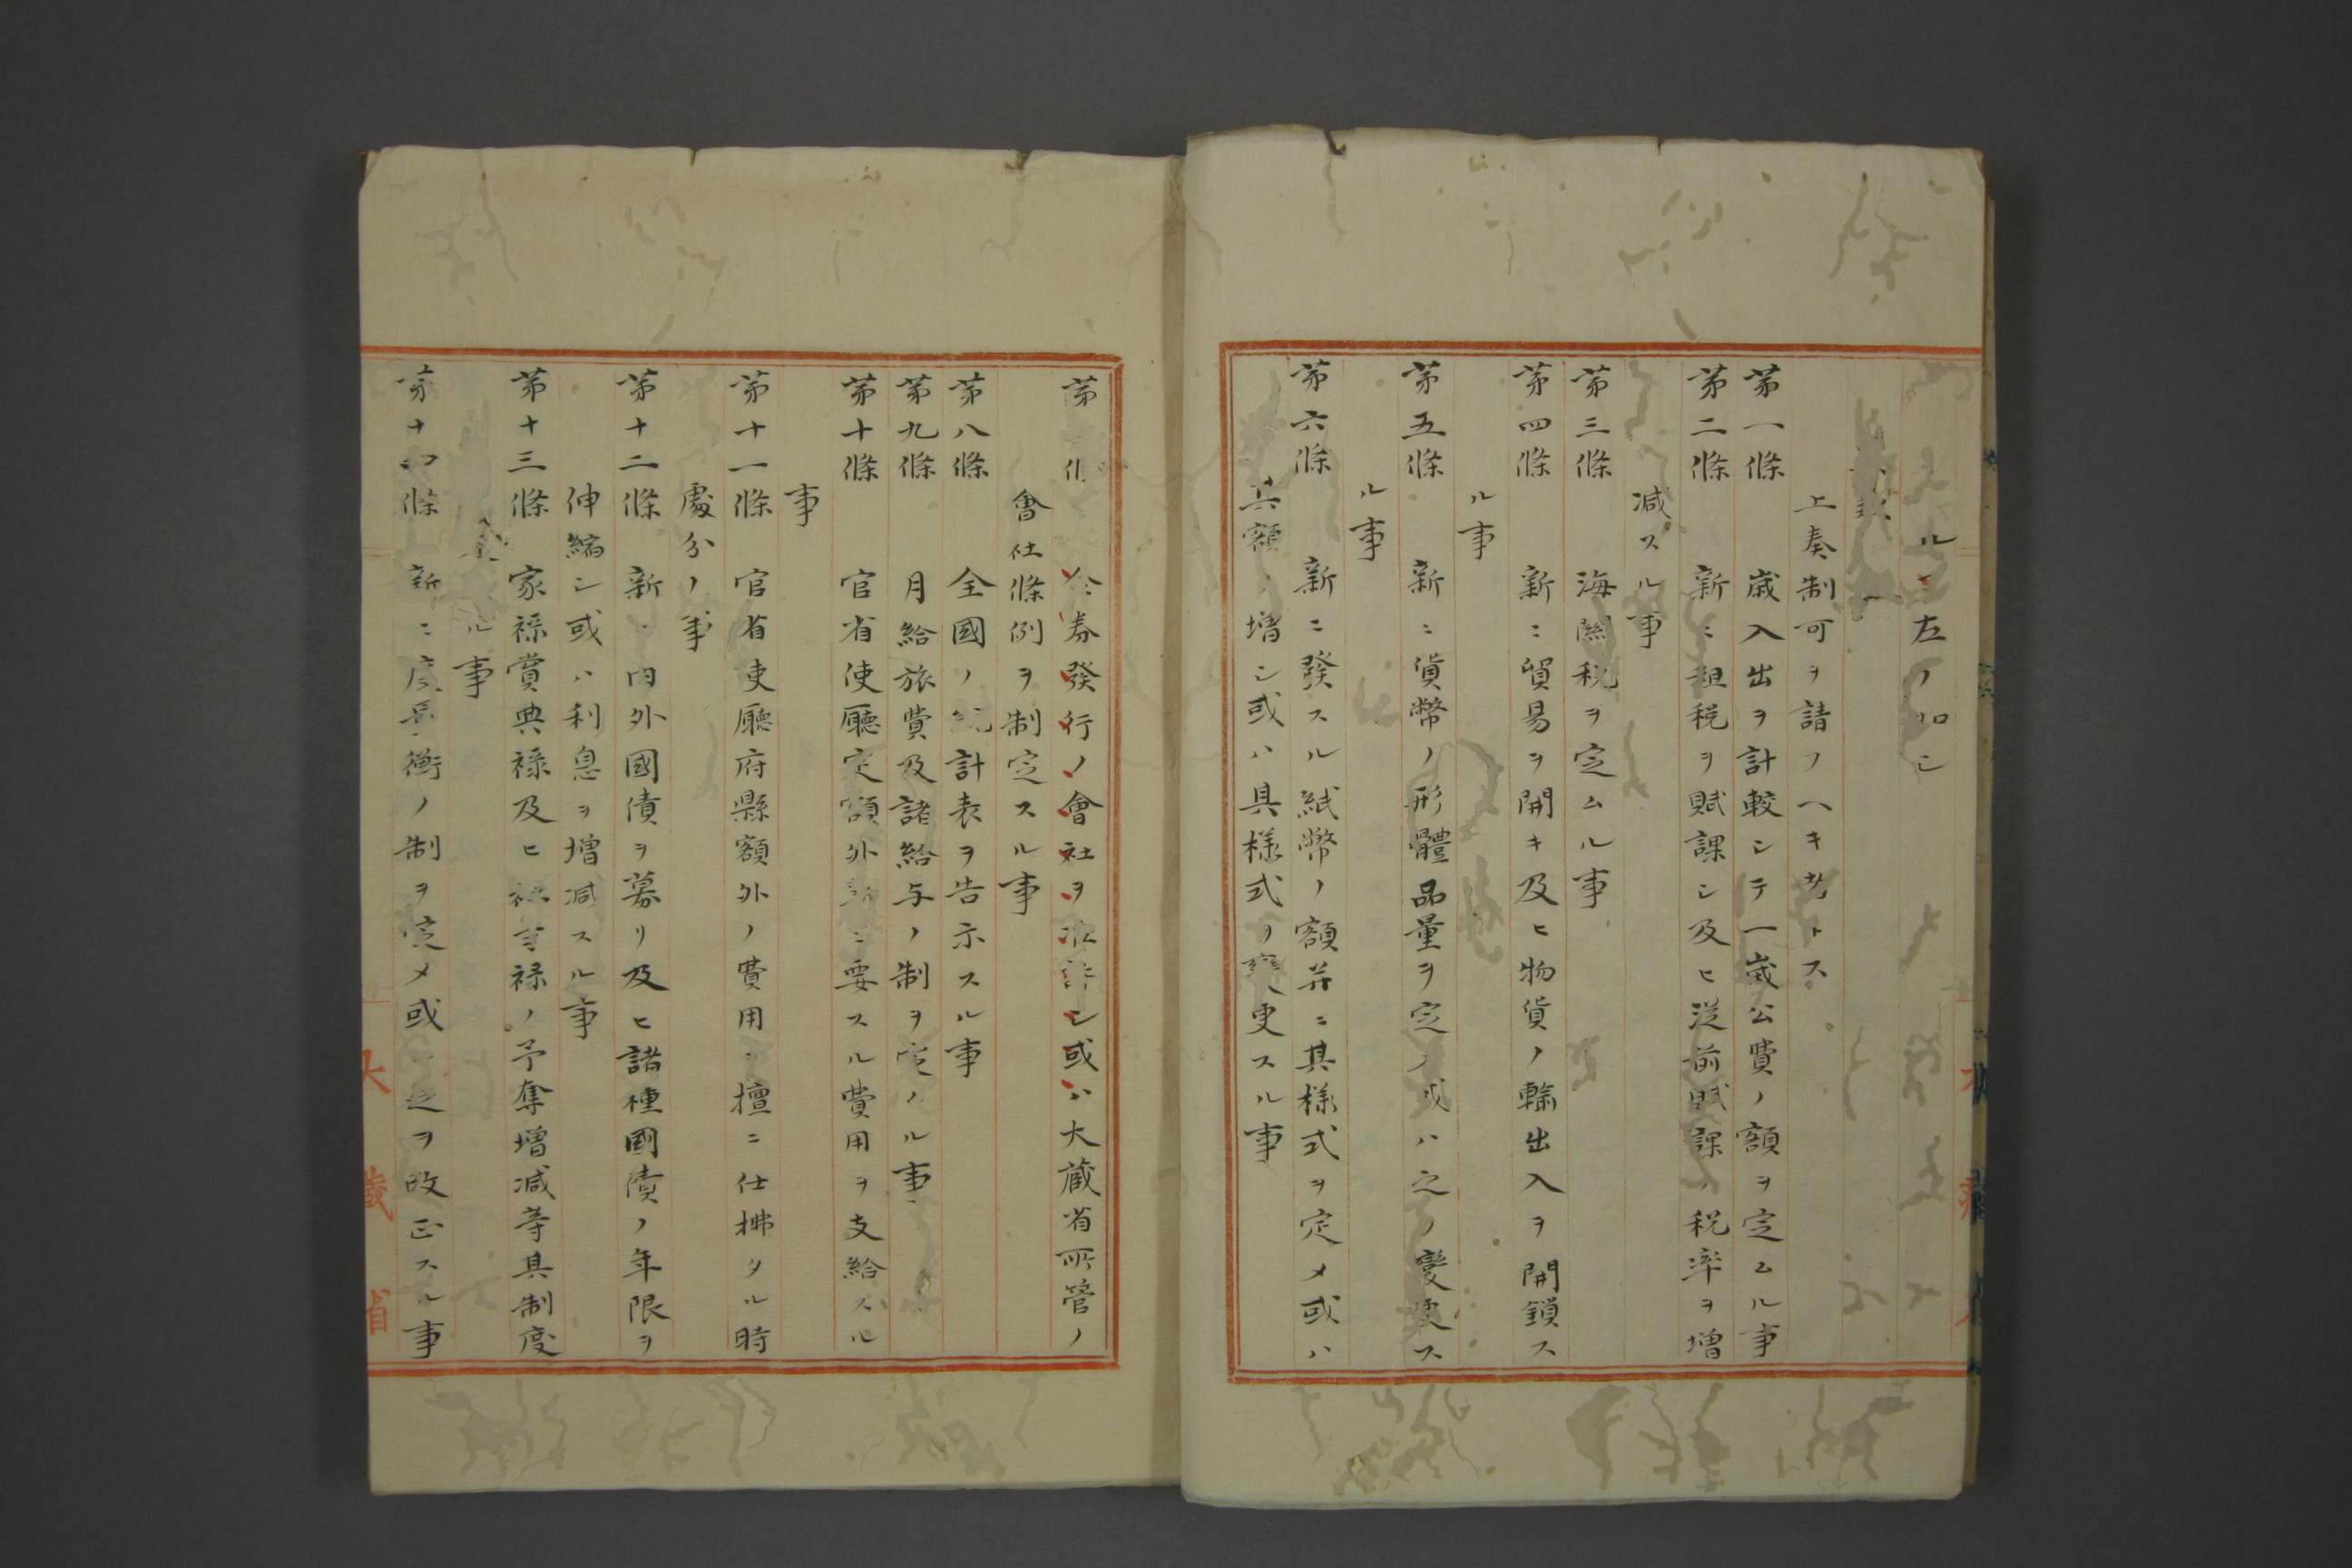 ル左ノ如シ
上奏制可ヲ請フヘキ者トス
第一條 歳入出ヲ計較シテ一歳公費ノ額ヲ定ムル事
第二條 新ニ租税ヲ賦課シ及ヒ従前賦課ノ税率ヲ増
減スル事
第三條 海關税ヲ定ムル事
第四條 新ニ貿易ヲ開キ及ヒ物貨ノ輸出入ヲ開鎖ス
ル事
第五條 新ニ貨幣ノ形體品量ヲ定メ或ハ之ヲ變更ス
ル事
第六條 新ニ發スル紙幣ノ額并ニ其様式ヲ定メ或ハ
其額ヲ増シ或ハ其様式ヲ変更スル事
第 條 金券發行ノ會社ヲ准許シ或ハ大蔵省所管ノ
會社條例ヲ制定スル事
第八條 全國ノ統計表ヲ告示スル事
第九條 月給旅費及諸給与ノ制ヲ定ムル事
第十條 官省使廳定額外新ニ要スル費用ヲ支給スル
事
第十一條 官省吏廳府縣額外ノ費用ヲ擅ニ仕拂タル時
處分ノ事
第十二條 新ニ内外國債ヲ募リ及ヒ諸種國債ノ年限ヲ
伸縮シ或ハ利息ヲ増減スル事
第十三條 家禄賞典禄及ヒ社寺禄ノ予奪増減等其制度
ル事
第十四條 新ニ度量衡ノ制ヲ定メ或ハ之ヲ改正スル事
大蔵省